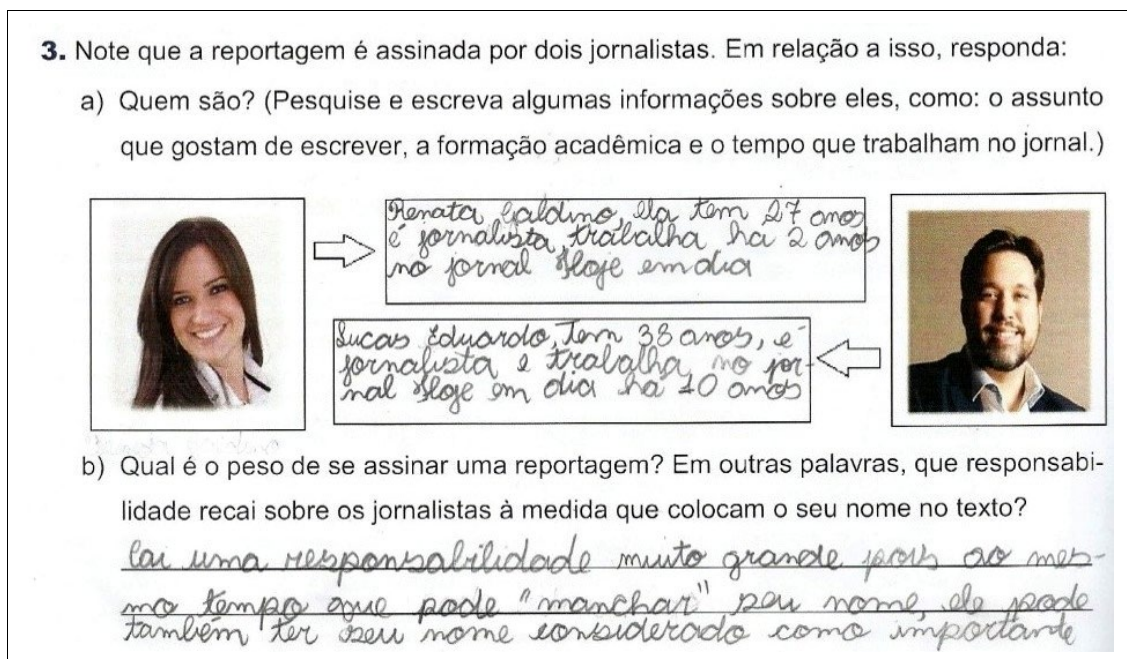 3. Note que a reportagem é assinada por dois jornalistas. Em relação a isso, responda:
a) Quem são? (Pesquise e escreva algumas informações sobre eles, como: o assunto
que gostam de escrever, a formação acadêmica e o tempo que trabalham no jornal.)
Renata Galdino, ela tem 27 anos
é jornalista, trabalha há 2 anos
no jornal Hoje em dia
Lucas Eduardo, Tem 38 anos, é
jornalista e trabalha no jor-
nal Hoje em dia há 10 anos
b) Qual é o peso de se assinar uma reportagem? Em outras palavras, que responsabi-
lidade recai sobre os jornalistas à medida que colocam o seu nome no texto?
Cai uma responsabilidade muito grande pois ao mes-
mo tempo que pode "manchar" seu nome, ele pode
também ter seu nome considerado como importante